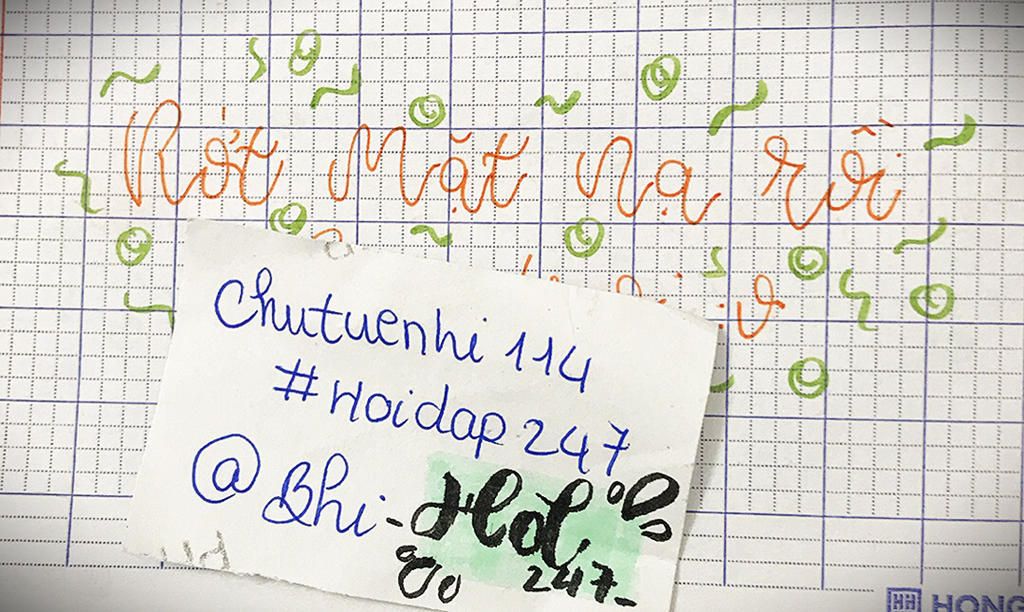 Rớt Mặt Nạ rồi
:v
Chutuenhi 114
#Hoidap 247
@Bhi-
247-
HH HONG